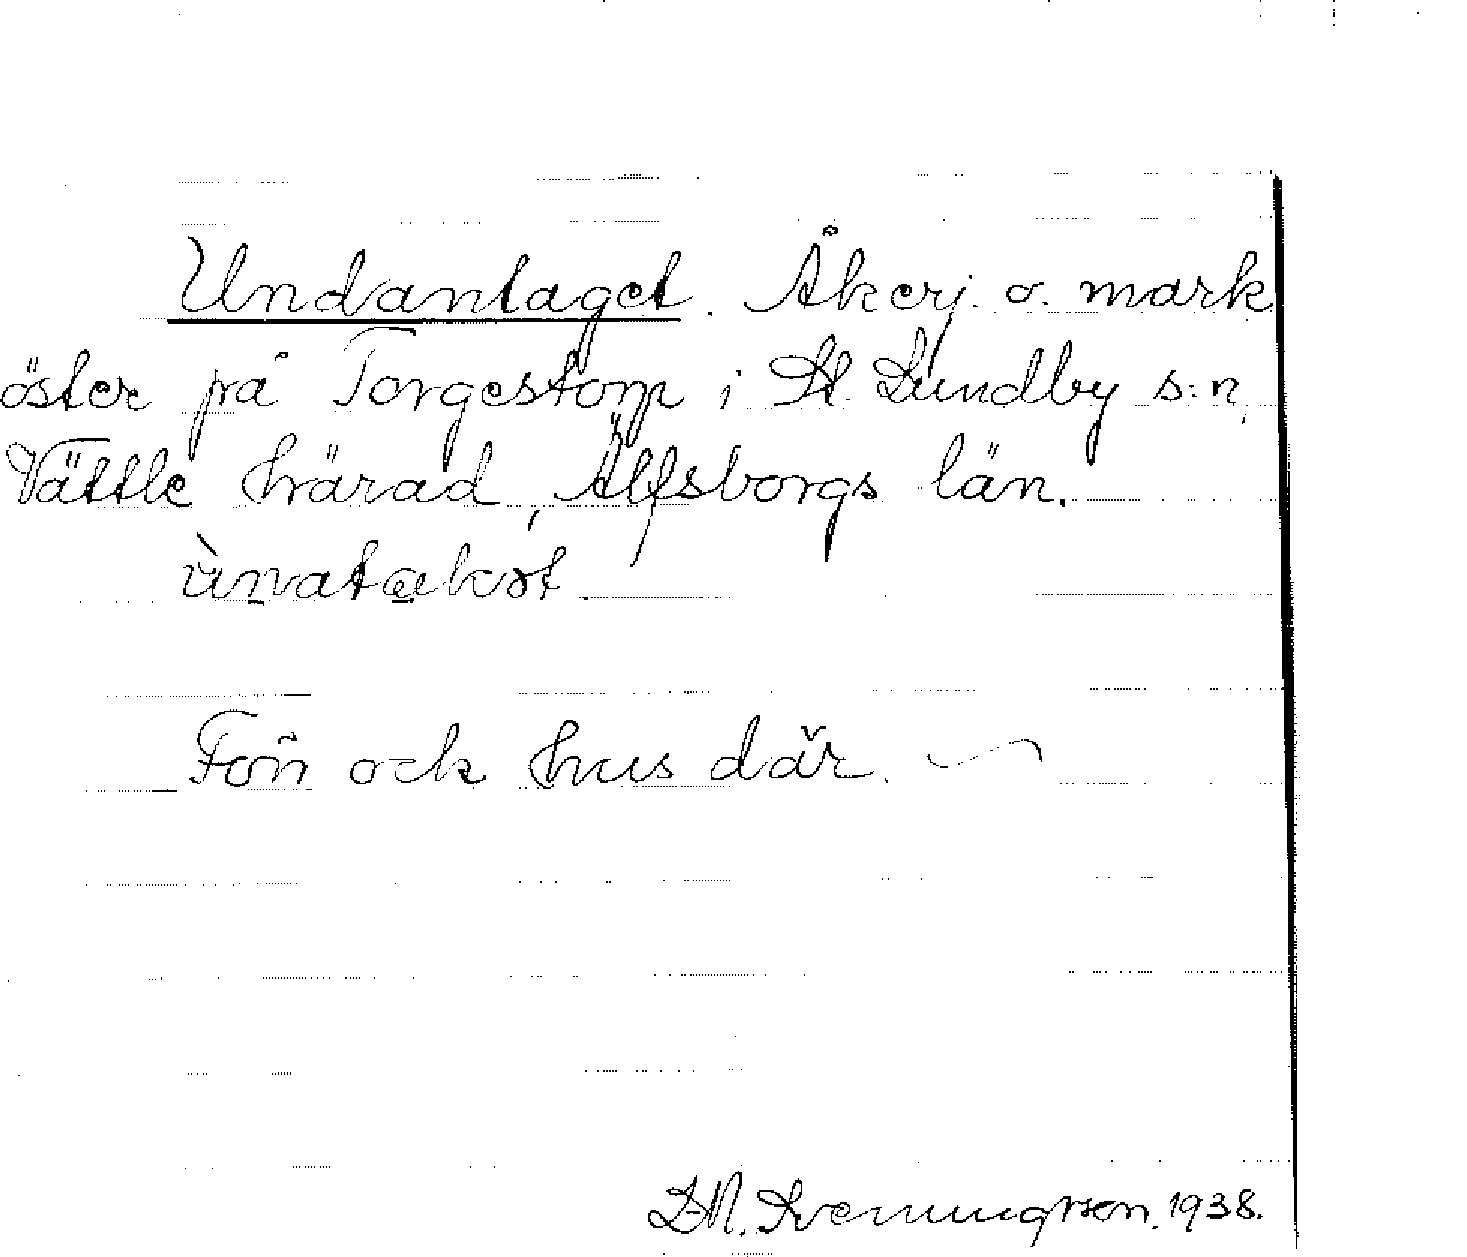 Undantaget. Åkerj. o. mark
öster på Torgestorp i St. Lundby s:n,
Vättle härad, Älfsborgs län.
ùnatækst
Förr ock hus där.
D.N. Svenningsson. 1938.